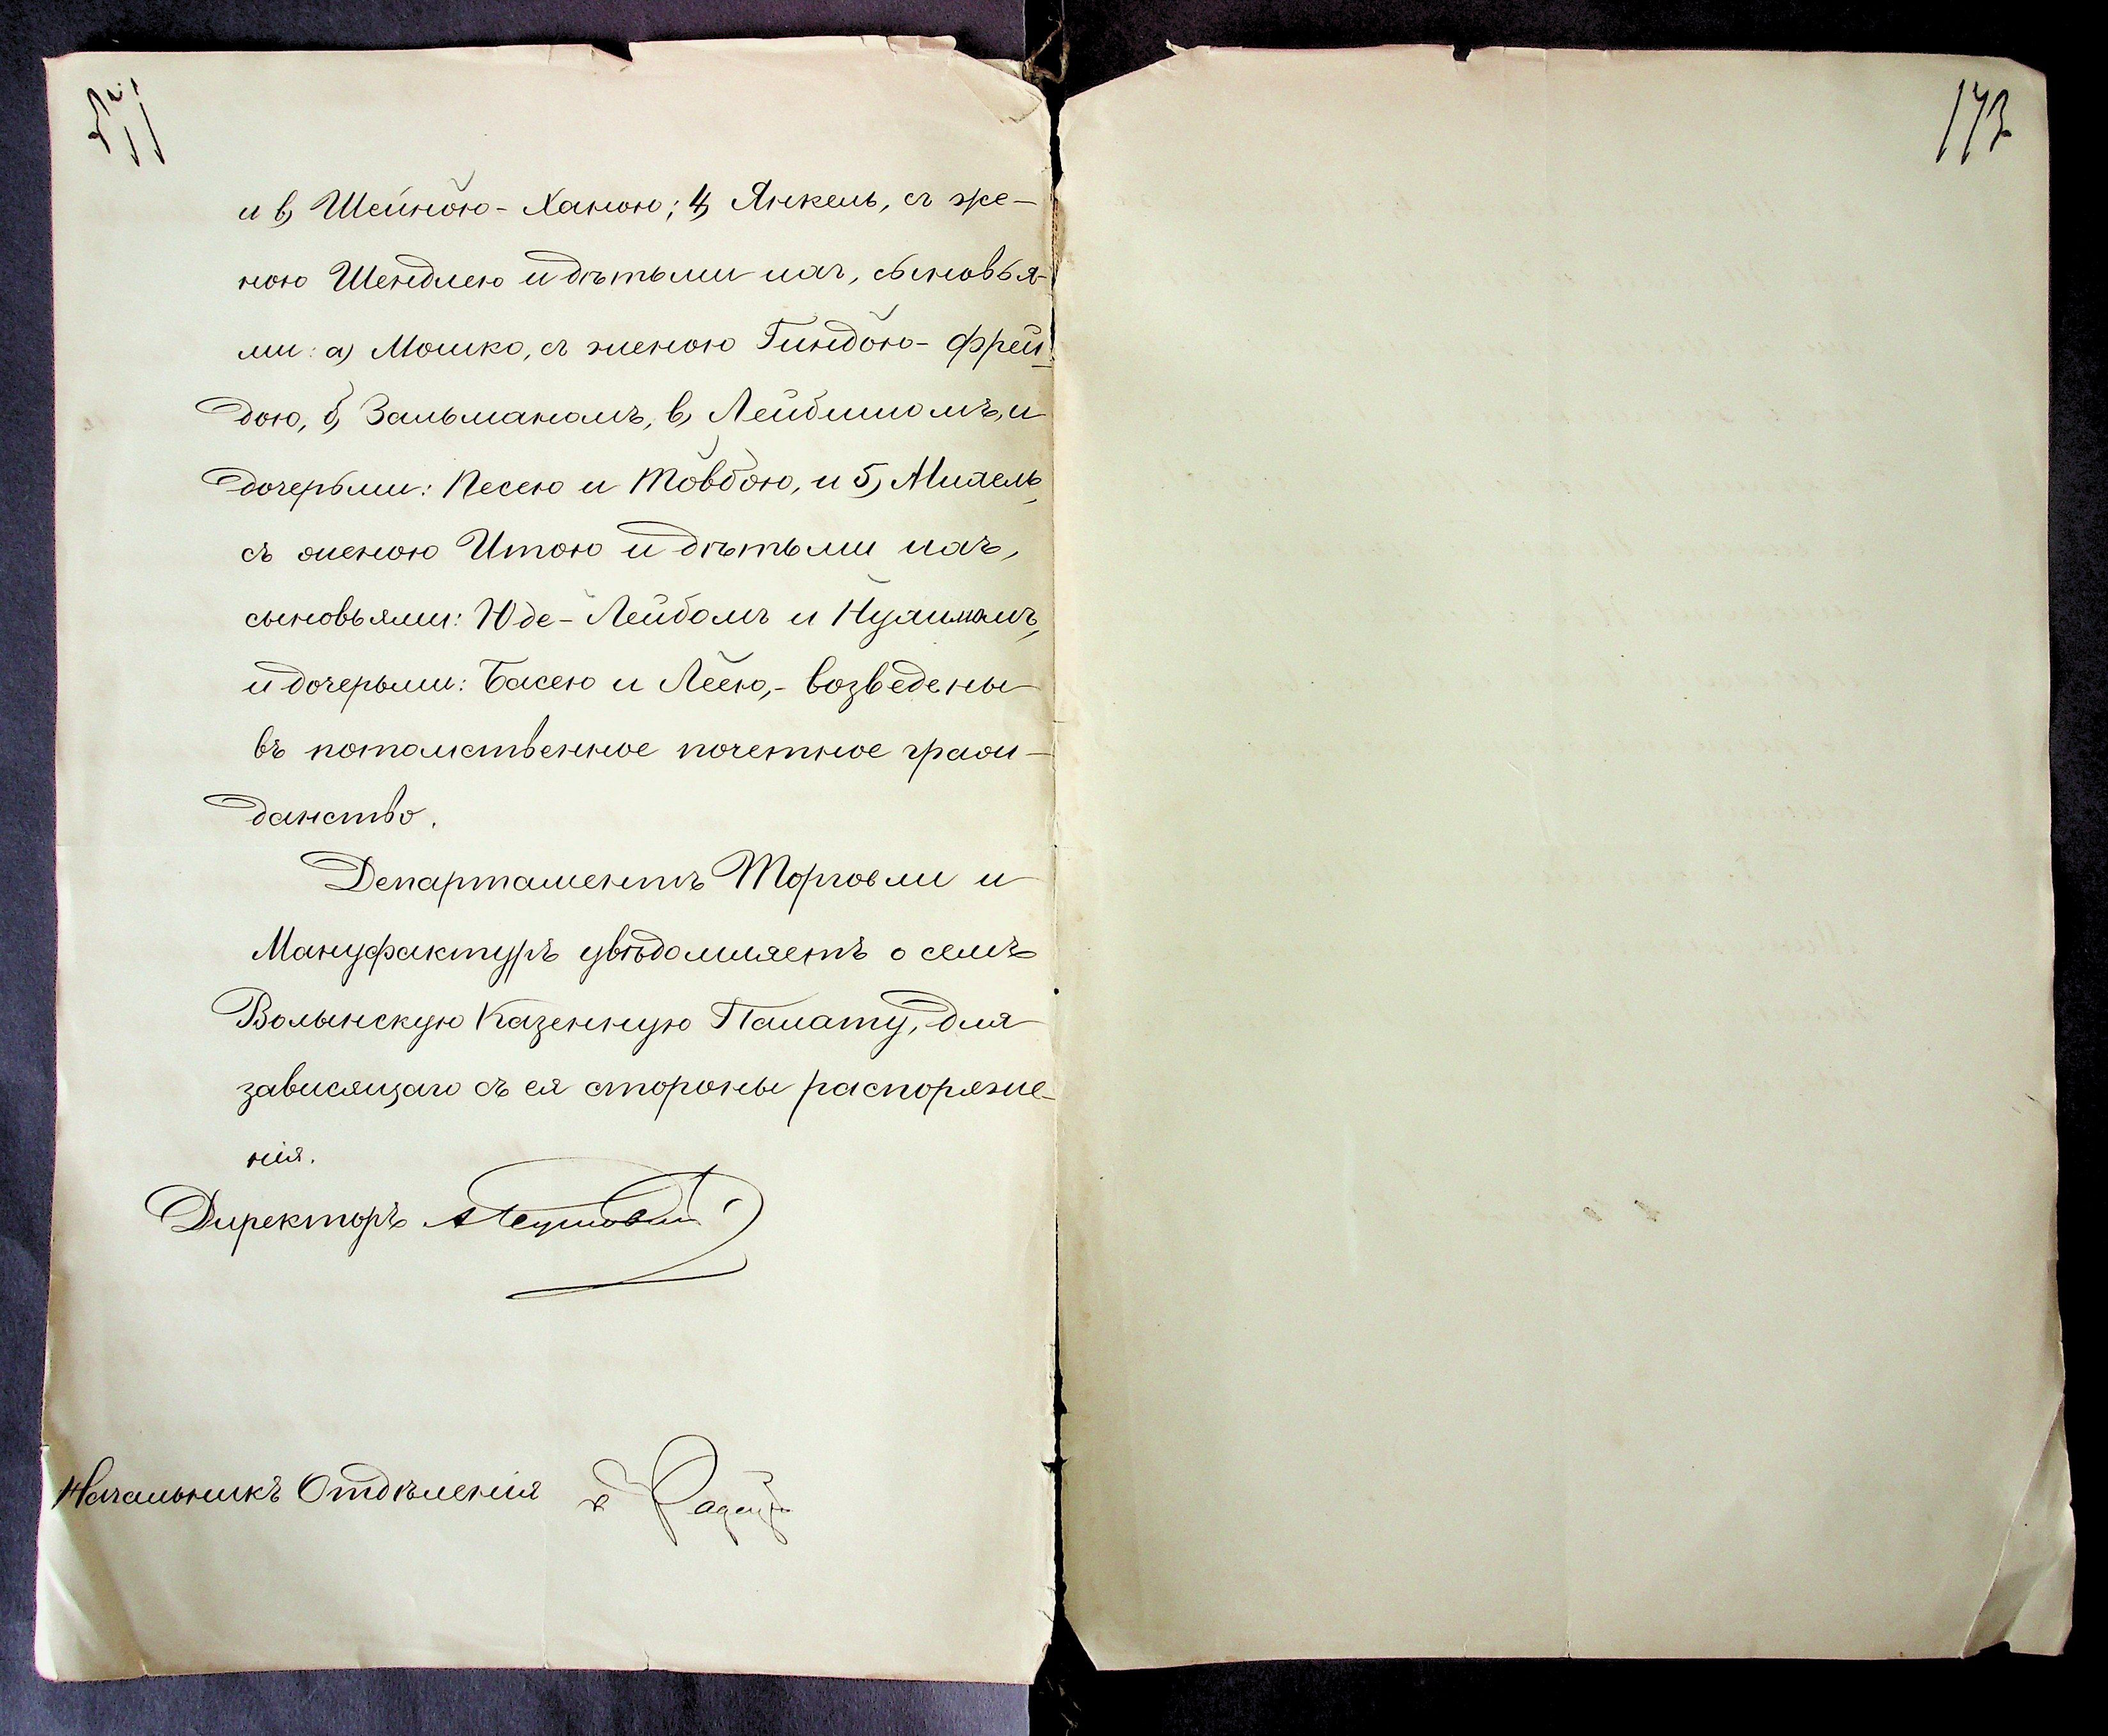 и в) Шейною-Ханою; 4) Янкель, съ же-
ною Шендлею и дѣтьми ихъ, сыновья-
ми: а) Мошко, съ женою Гиндою-Фрей-
дою, б) Зальманомъ, в) Лейбишомъ, и
дочерьми: Песею и Товбою, и 5) Михель,
съ женою Итою и дѣтьми ихъ,
сыновьями: Юде-Лейбомъ и Нухимомъ,
и дочерьми: Басею и Леею,- возведены
въ потомственное почетное граж-
данство.
Департаментъ Торговли и
Мануфактуръ увѣдомляетъ о семъ
Волынскую Казенную Палату, для
зависящаго съ ея стороны распоряже-
нія.
Директоръ
Начальникъ Отдѣленія
173